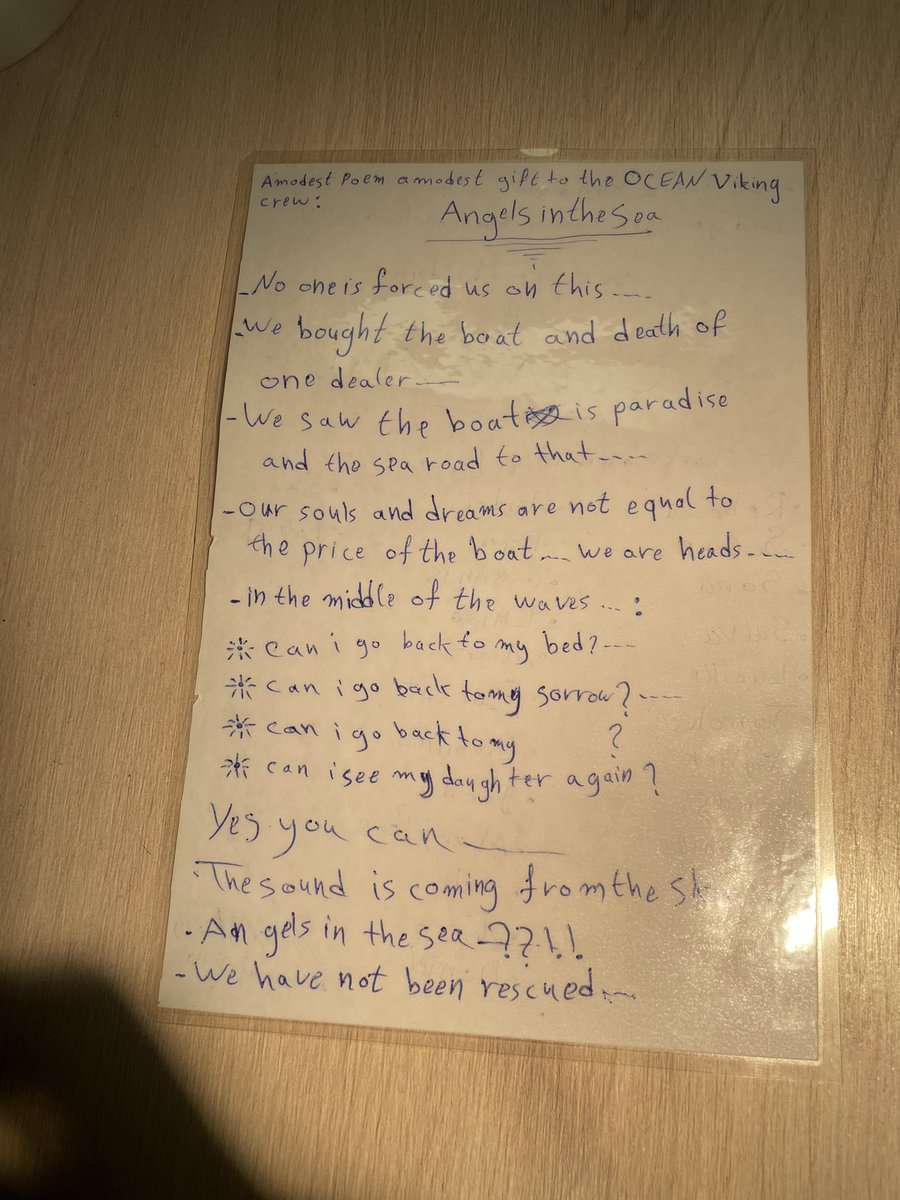 Amodest Poem amodest gift to the OCEAN Viking
crew:
Angels inthe Sea
- No one is forced us on this ----
- We bought the boat and death of
one dealer ---
- We saw the boat is paradise
and the sea road to that ----
- Our souls and dreams are not equal to
the price of the boat --- we are heads ----
- in the middle of the waves ... :
☼ can i go back to my bed? ---
☼ can i go back to my sorrow? ----
☼ can i go back to my ?
☼ can i see my daughter again?
Yes you can ___
- The sound is coming from the
- Angels in the sea - ??!!
- We have not been rescued ...